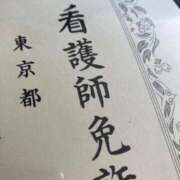 看護師免許
東京都